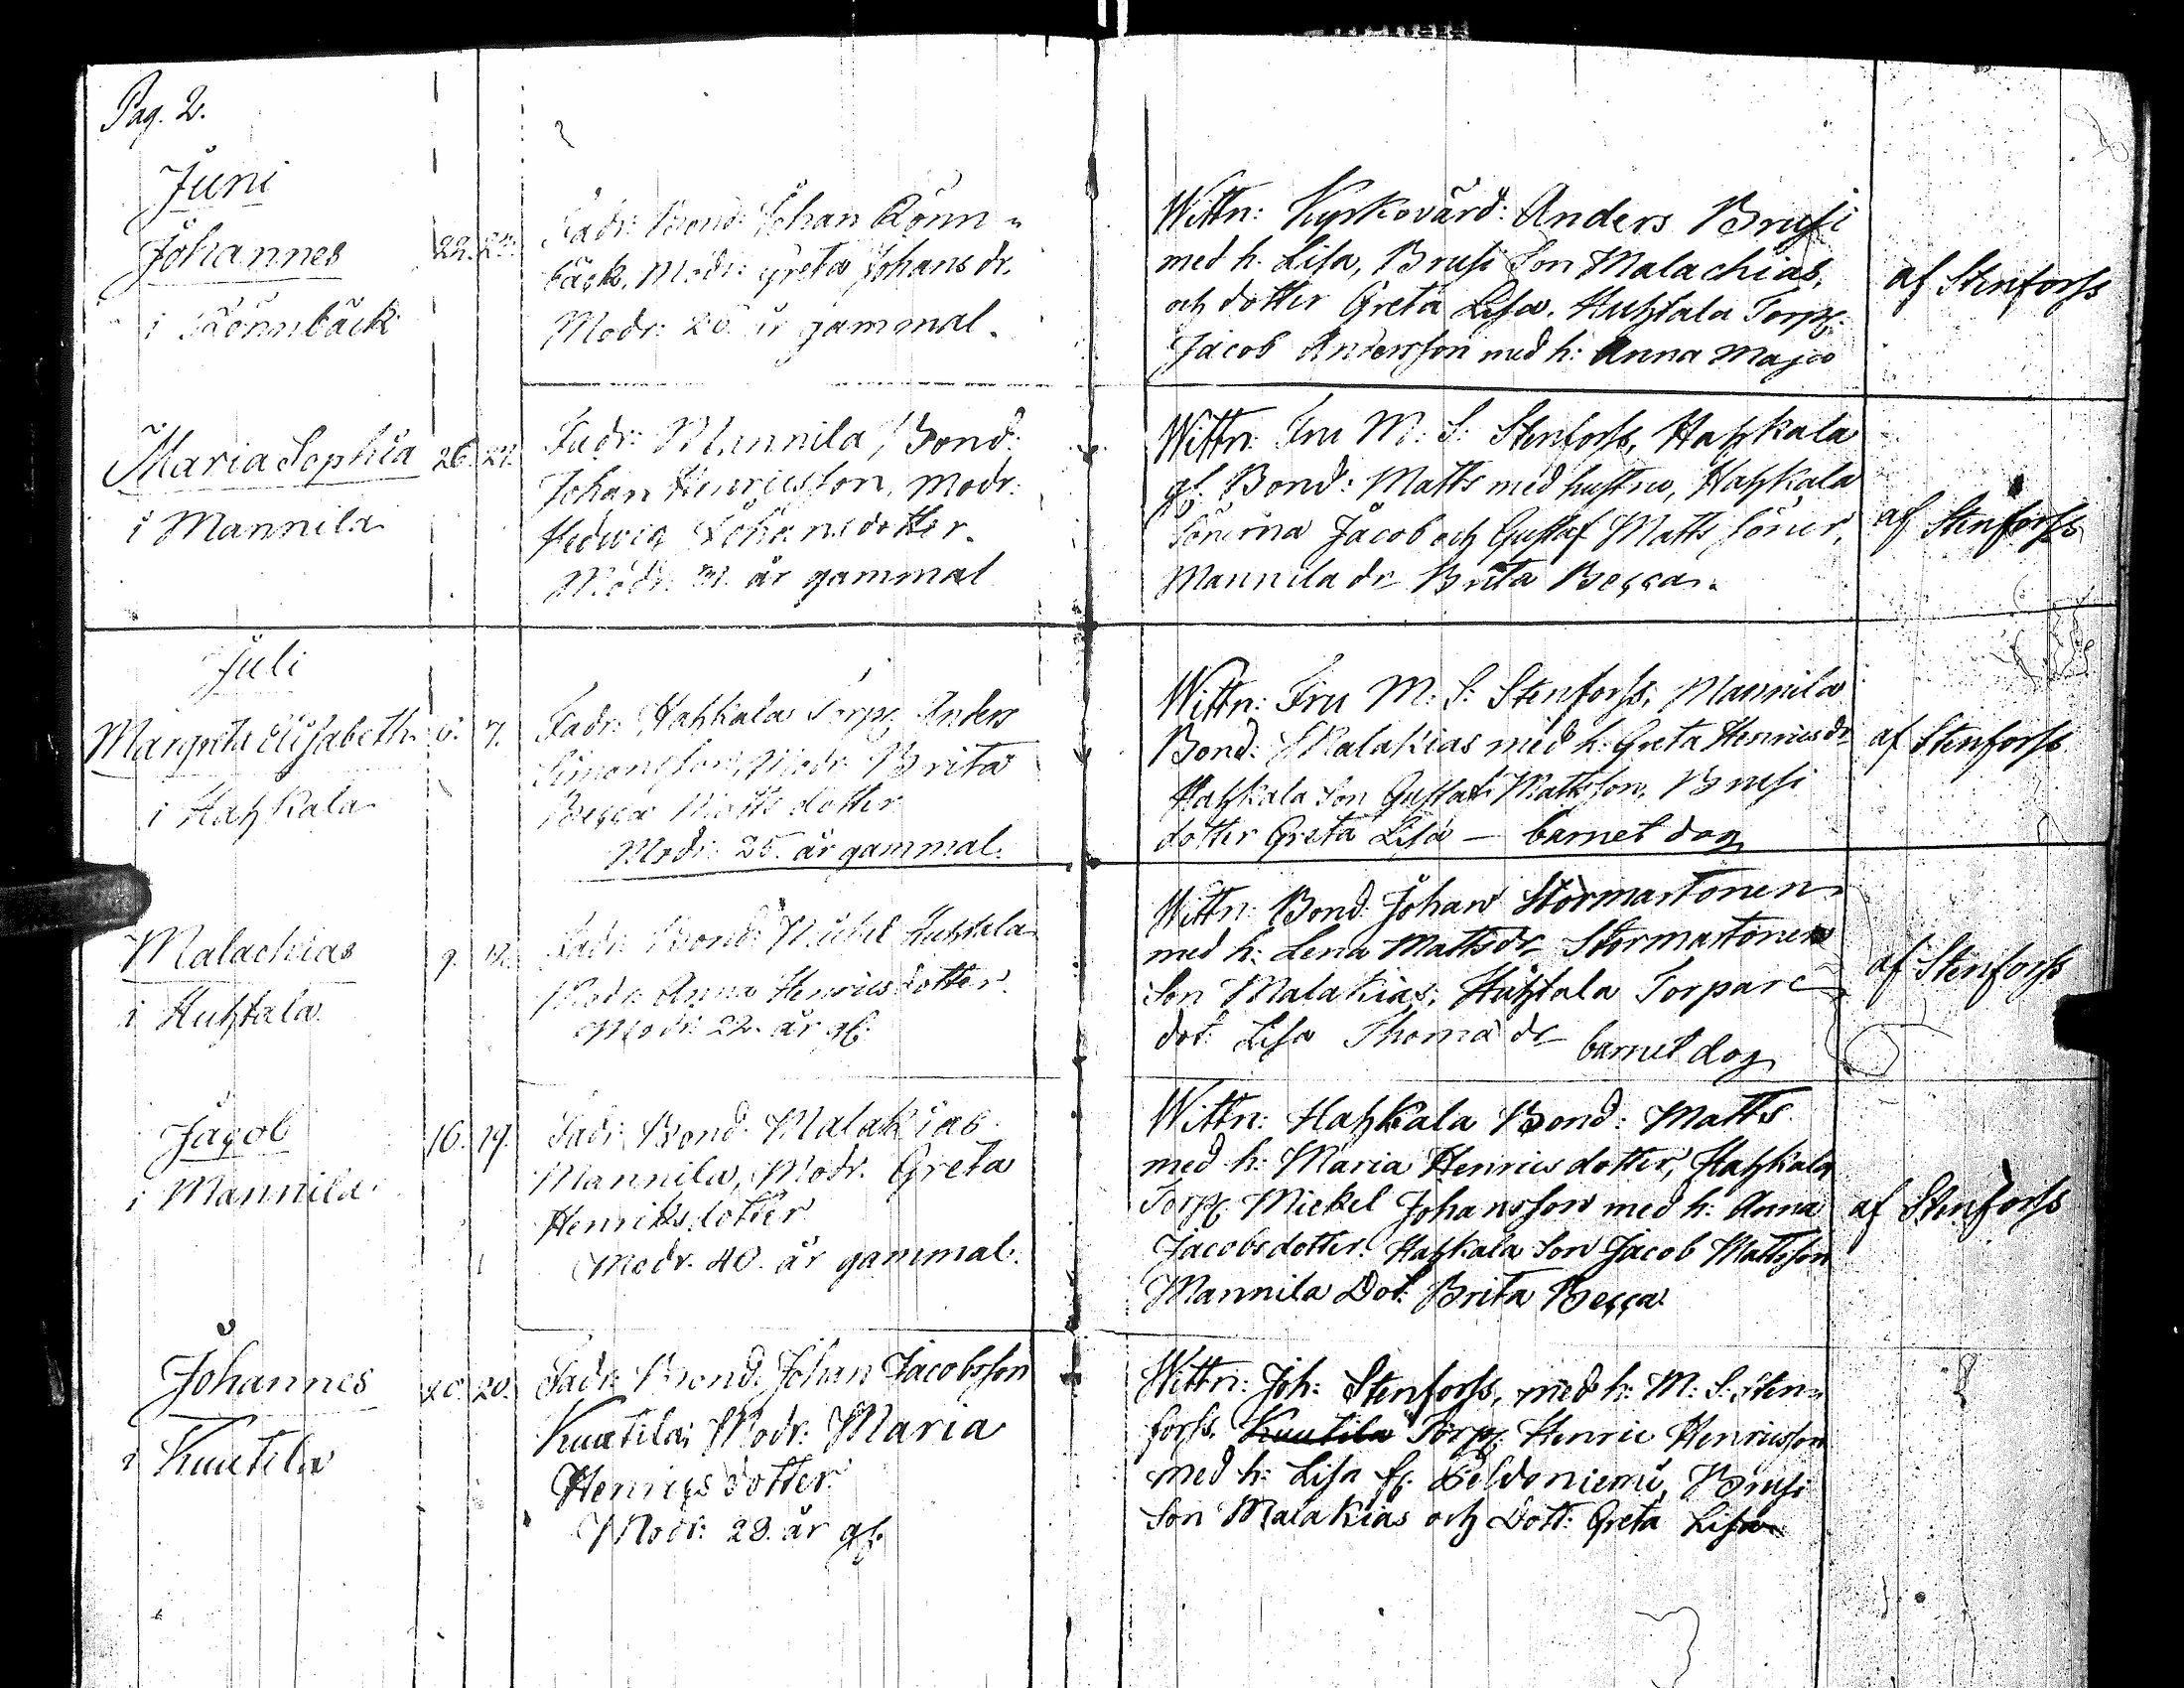 Pag. 2.
Juni
Johannes 22. 23.
i Rönnbäck
Fadr: Bond: Johan Rönn=
bäck, Modr: Greta Johansdr.
Modr: år gammal.
Wittn: Kyrkovärd: Anders Brusi
med h. Lisa, Brusi Son Malachias,
och dotter Greta Lisa. Huhtala Torp:
Jacob Andersson med h: Anna Maja
af Stenforss
Maria Sophia 26. 27.
i Mannila
Fadr: Mannila Bond:
Johan Henricsson, Modr:
Hedwig Johansdotter.
Modr: 31. år gammal
Wittn: Fru M: S: Stenforss, Hahkala
gl. Bond: Matts med hustru, Hahkala
Sönerna Jacob och Gustaf Matts söner,
Mannila dr Brita Becca.
af Stenforss
Juli
Margreta Elisabeth 6. 7.
i Hahkala
Fadr: Hahkala Torp: Anders
Simonsson, Modr: Brita
Becca Matts dotter
Modr: 25. år gammal.
Wittn: Fru M: S: Stenforss, Mannila
Bond: Malakias med h: Greta Henricsdr
Hahkala Son Gustaf Mattsson, Brusi
dotter Greta Lisa — barnet dog
af Stenforss
Malachias 9. 12.
i Huhtala
Fadr: Bond: Mickel Huhtala
Modr: Anna Henricsdotter.
Modr: 22. år gl.
Wittn: Bond: Johan Stormartonen
med h: Lena Mattsdr Stormartonen
Son Malakias, Huhtala Torpare
dot: Lisa Thoma dr barnet dog
af Stenforss
Jacob 16. 19.
i Mannila
Fadr: Bond: Malakias
Mannila, Modr. Greta
Henriksdotter
Modr. 40. år gammal.
Wittn: Hahkala Bond: Matts
med h: Maria Henricsdotter, Hahkala
Torp: Mickel Johansson med h: Anna
Jacobsdotter. Hahkala Son Jacob Mattsson
Mannila Dot: Brita Becca
af Stenforss
Johannes 20. 20.
i Kuutila
Fadr: Bond: Johan Jacobsson
Kuutila; Modr: Maria
Henricsdotter
Modr: 28. år gl.
Wittn: Joh: Stenforss, med h: M: S: Sten=
forss, Kuutila Torp: Henric Henricsson
med h: Lisa fr. Peldoniemi, Brusi
Son Malakias och Dott: Greta Lisa